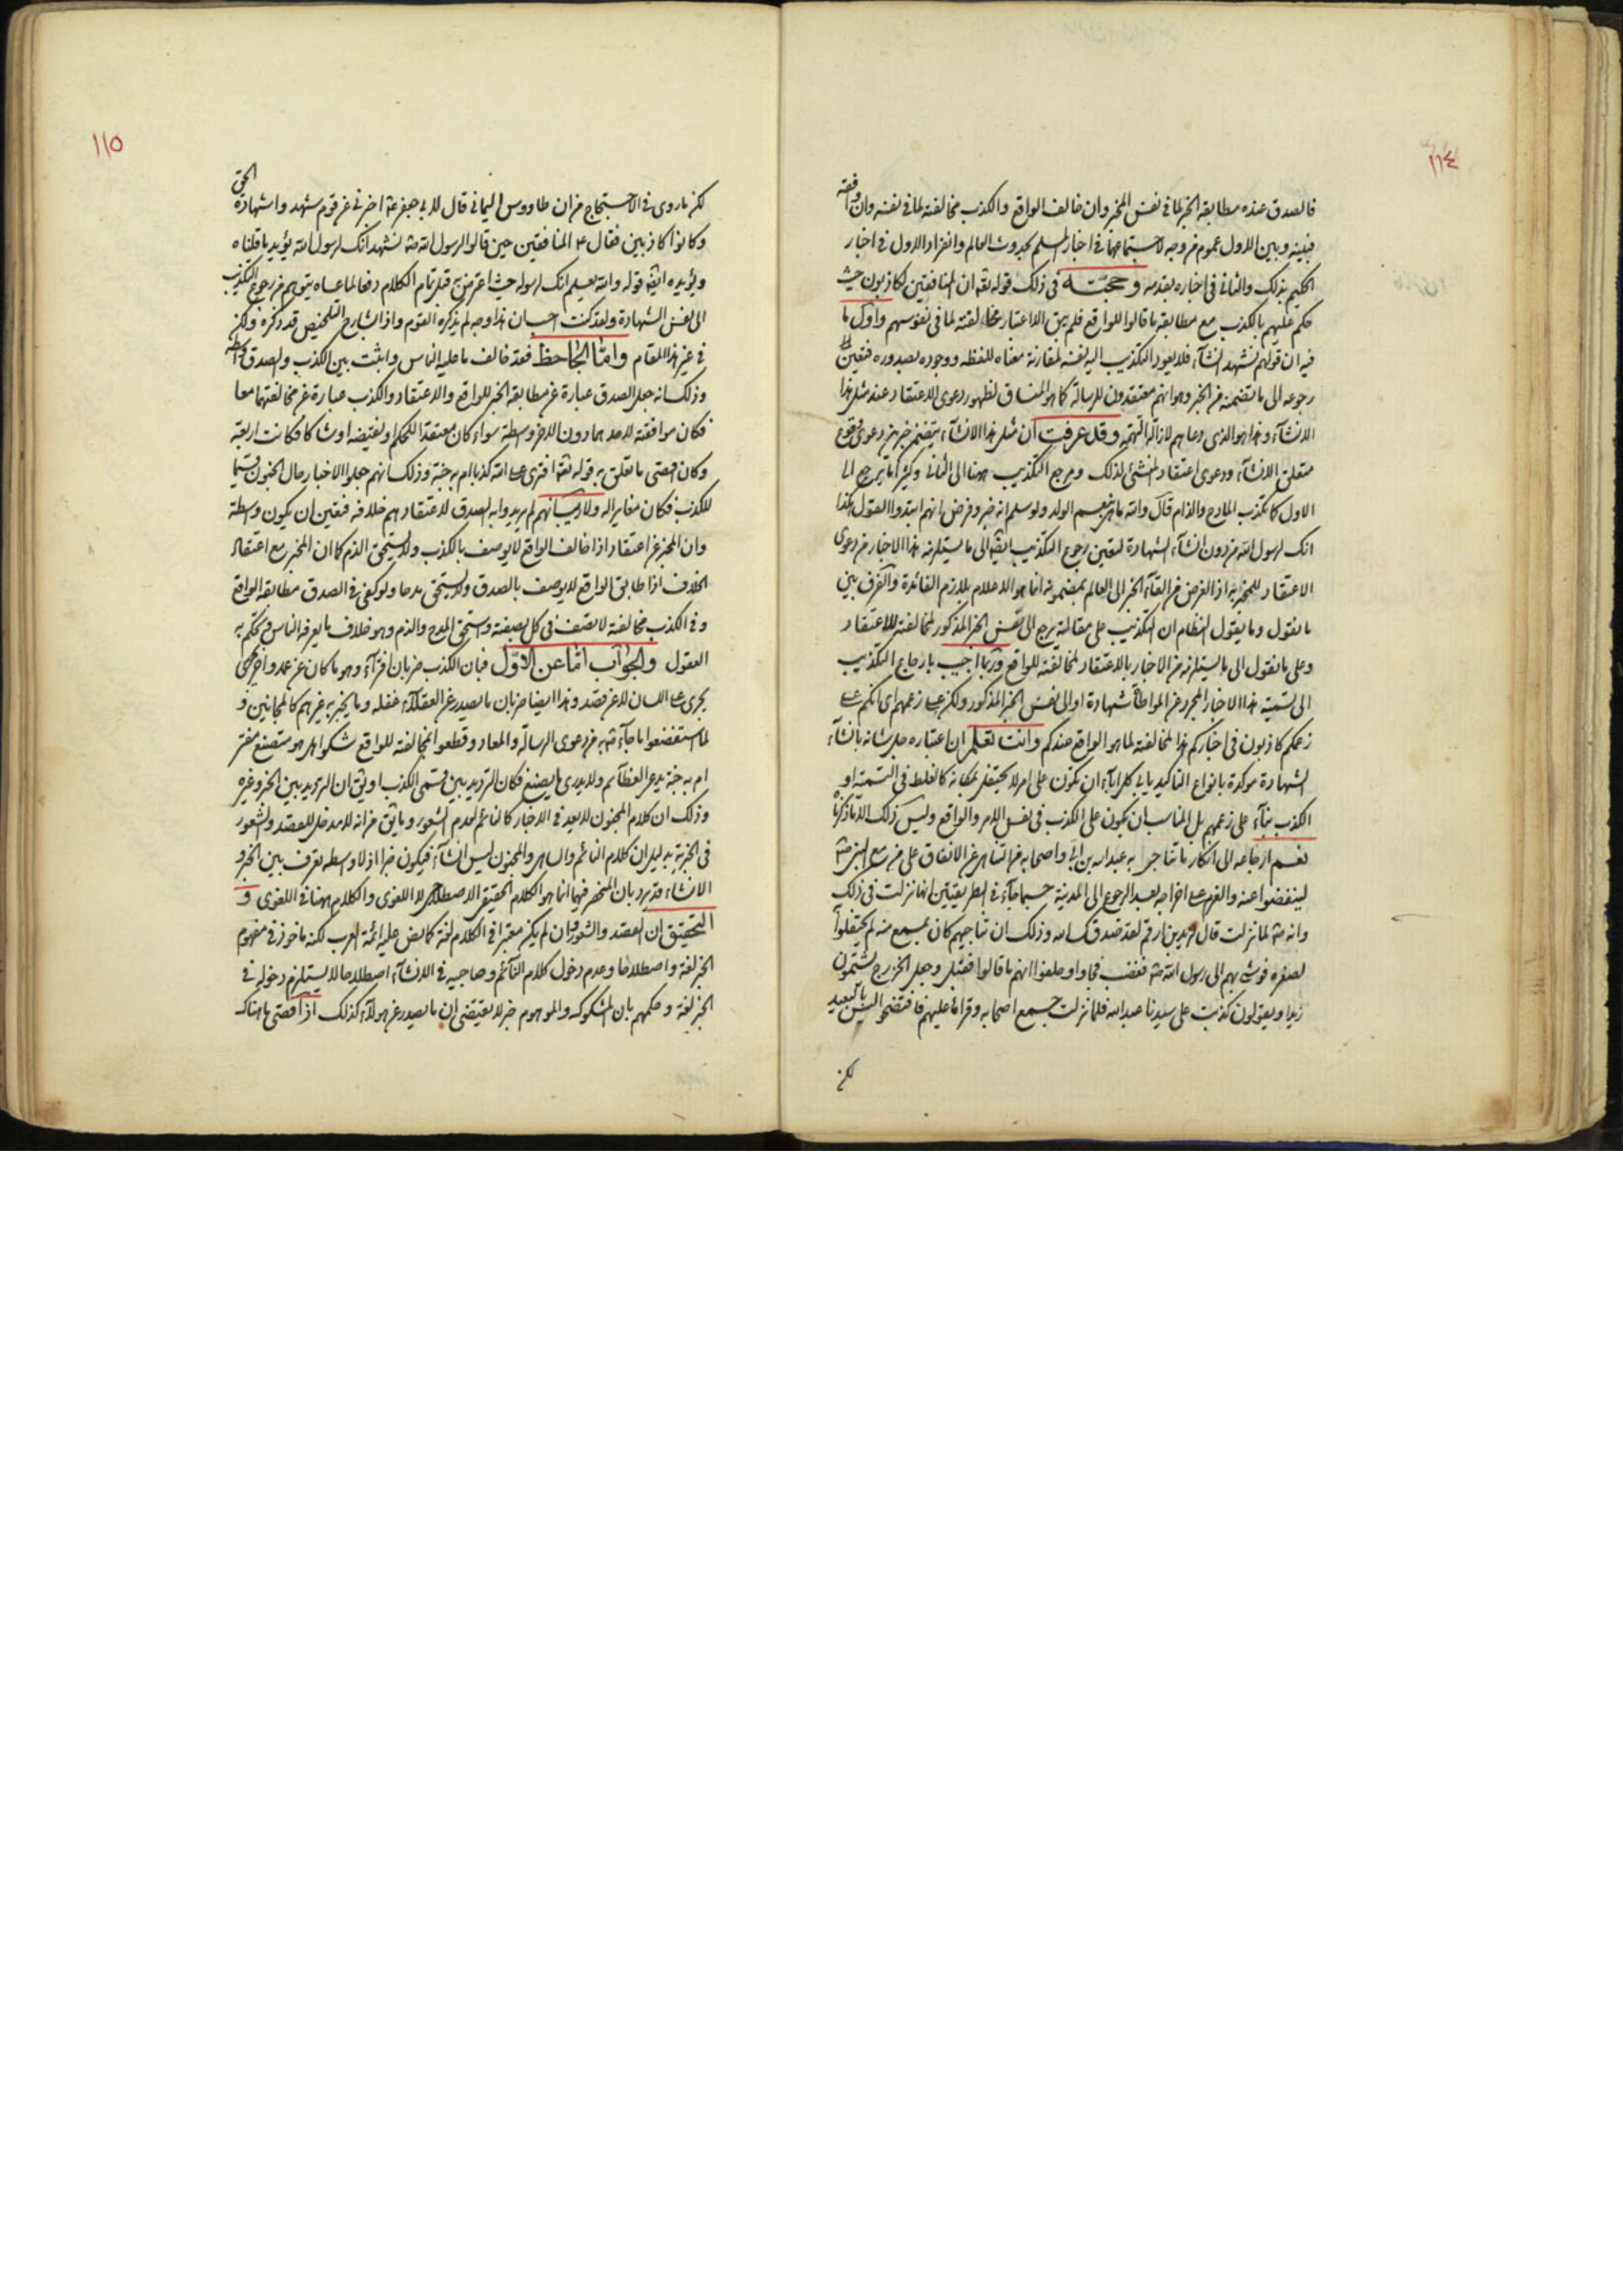 ١١٤
فالصدق عنده مطابقة الخبر لما في نفس المخبر وان خالف الواقع والكذب مخالفته لما في نفسه وان وافقه
فبينه وبين الاول عموم من وجه لاجتماعهما في اخبار المسلم بحدوث العالم وانفراد الاول في اخبار
الحكيم بذلك والثاني في اخباره بقدمه وحجته في ذلك قوله تعه ان المنافقين لكاذبون حيث
حكم عليهم بالكذب مع مطابقة ما قالوا للواقع فلم يبق الا اعتبار مخالفته لما في نفوسهم واول ما
فيه ان قولهم نشهد انشاء فلا يعود التكذيب اليه نفسه لمقارنة معناه للفظه ووجوده بصدوره فتعين
رجوعه الى ما تضمنه من الخبر وهو انهم معتقدون للرسالة كما هو المنساق لظهور دعوى الاعتقاد عند مثل هذا
الانشاء وهذا هو الذي دعاهم لازالة التهمة وقد عرفت ان مثل هذا الانشاء يتضمن خبرين دعوى وقوع
متعلق الانشاء ودعوى اعتقاد المنشئ لذلك ومرجع التكذيب ههنا الى الثاني وكثيرا ما يرجع الى
الاول كما تكذب المادح والذام قال والله ما هي بنعم الولد ولو سلم انه خبر وفرض انهم ابتدوا القول هكذا
انك لرسول الله من دون انشاء الشهادة لتعين رجوع التكذيب ايضا الى ما يستلزمه هذا الاخبار من دعوى
الاعتقاد للمخبر به اذ الغرض من القاء الخبر الى العالم بمضمونه انما هو الاعلام بلازم الفائدة والفرق بين
ما نقول وما يقول النظام ان التكذيب على مقالته يرجع الى نفس الخبر المذكور لمخالفته للاعتقاد
وعلى ما نقول الى ما يستلزمه من الاخبار بالاعتقاد لمخالفته للواقع وربما اجيب بارجاع التكذيب
الى تسمية هذا الاخبار المجرد عن المواطاة شهادة او الى نفس الخبر المذكور ولكن على زعمهم اي انكم على
زعمكم كاذبون في اخباركم هذا لمخالفته لما هو الواقع عندكم وانت تعلم ان اعتباره جل شانه بانشاء
الشهادة مؤكدة بانواع التاكيد يابى كل الاباء ان يكون على امر لا يحتفل بمكانه كالغلط في التسمية او
الكذب بناء على زعمهم بل المناسب ان يكون على الكذب في نفس الامر والواقع وليس ذلك الا ما ذكرنا
نعم ارجاعه الى انكار ما تناجى به عبد الله بن ابي واصحابه من التناهي عن الانفاق على من مع النبي صه
لينفضوا عنه والعزم على اخراجه بعد الرجوع الى المدينة حسبما جاء في الطريقين انها نزلت في ذلك
وانه صه لما نزلت قال لزيد بن ارقم لقد صدقك الله وذلك ان تناجيهم كان بمسمع منه لم يحتفلوا
لصغره فوشى بهم الى رسول الله صه فغضب فجاوا وحلفوا انهم ما قالوا فقبل وجعل الخزرج يشتمون
زيدا ويقولون كذبت على سيدنا عبد الله فلما نزلت جمع اصحابه وقراها عليهم فافتضحوا
لكن
١١٥
لكن ما روى في الاحتجاج من ان طاووس اليماني قال لابي جعفر عه اخبرني عن قوم شهدوا شهادة الحق
وكانوا كاذبين فقال ع المنافقين حين قالوا لرسول الله صه نشهد انك لرسول الله يؤيد ما قلناه
ويؤيده ايضا قوله والله يعلم انك لرسوله حيث اعترض به قبل تمام الكلام دفعا لما عساه يتوهم من رجوع التكذيب
الى نفس الشهادة ولقد كنت احسب ان هذا وجه لم يذكره القوم واذا الشارح التلخيص قد ذكره ولكن
في غير هذا المقام واما الجاحظ فقد خالف ما عليه الناس واثبت بين الكذب والصدق واسطة
وذلك انه جعل الصدق عبارة عن مطابقة الخبر للواقع والاعتقاد والكذب عبارة عن مخالفتهما معا
فكان موافقته لاحدهما دون الاخر واسطة سواء كان معتقدا للحكم او لنقيضه او شاكا فكانت اربعة
وكان اقصى ما تعلق به قوله تعه افترى على الله كذبا ام به جنة وذلك انهم جعلوا الاخبار حال الجنون قسيما
للكذب فكان مغايرا له ولا ريب انهم لم يريدوا به الصدق لاعتقادهم خلافه فتعين ان يكون واسطة
وان المخبر عن اعتقاد اذا خالف الواقع لا يوصف بالكذب ولا يستحق الذم كما ان المخبر مع اعتقاد
الخلاف اذا طابق الواقع لا يوصف بالصدق ولا يستحق مدحا ولو كفى في الصدق مطابقة الواقع
وفي الكذب مخالفته لاتصف في كل بصفته واستحق المدح والذم وهو خلاف ما يعرفه الناس وتحكم به
العقول والجواب اما عن الاول فبان الكذب ضربان افتراء وهو ما كان عن عمد واخر
يجري على اللسان لا عن قصد وهذا ايضا ضربان ما يصدر عن العقلاء غفلة وما يخبر به غيرهم كالمجانين و
لما استفضعوا ما جاء صه به من دعوى الرسالة والمعاد وقطعوا بمخالفته للواقع شكوا هل هو متصنع مفتر
ام به جنة يدعي العظائم ولا يدري ما يصنع فكان الترديد بين قسمي الكذب او يق ان الترديد بين الخبر وغيره
وذلك ان كلام المجنون لا يعد في الاخبار كالنائم لعدم الشعور وما يق من انه لا مدخل للقصد والشعور
في الخبرية بدليل ان كلام النائم والساهي والمجنون ليس انشاء فيكون خبرا اذ لا واسطة تعرف بين الخبر و
الانشاء قد يرد بان المنحصر فيهما انما هو الكلام الحقيقي الاصطلاحي لا اللغوي والكلام ههنا في اللغوي و
التحقيق ان القصد والشعور وان لم يكن معتبرا في الكلام لغة كما نص عليه ائمة العرب لكنه ماخوذ في مفهوم
الخبر لغة واصطلاحا وعدم دخول كلام النائم وصاحبيه في الانشاء اصطلاحا لا يستلزم دخوله في
الخبر لغة وحكمهم بان المشكوك والموهوم خبر لا يقتضي ان ما يصدر عن هؤلاء كذلك اذ اقصى ما هناك